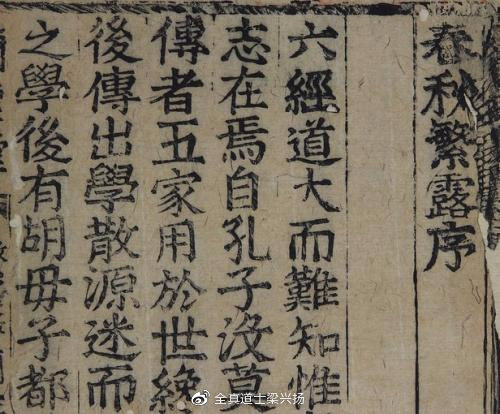 春秋繁露序
六經道大而難知惟
志在焉自孔子没莫
傳者五家用於世纔
後傳出學散源迷而
之學後有胡毋子都
全真道士梁兴扬